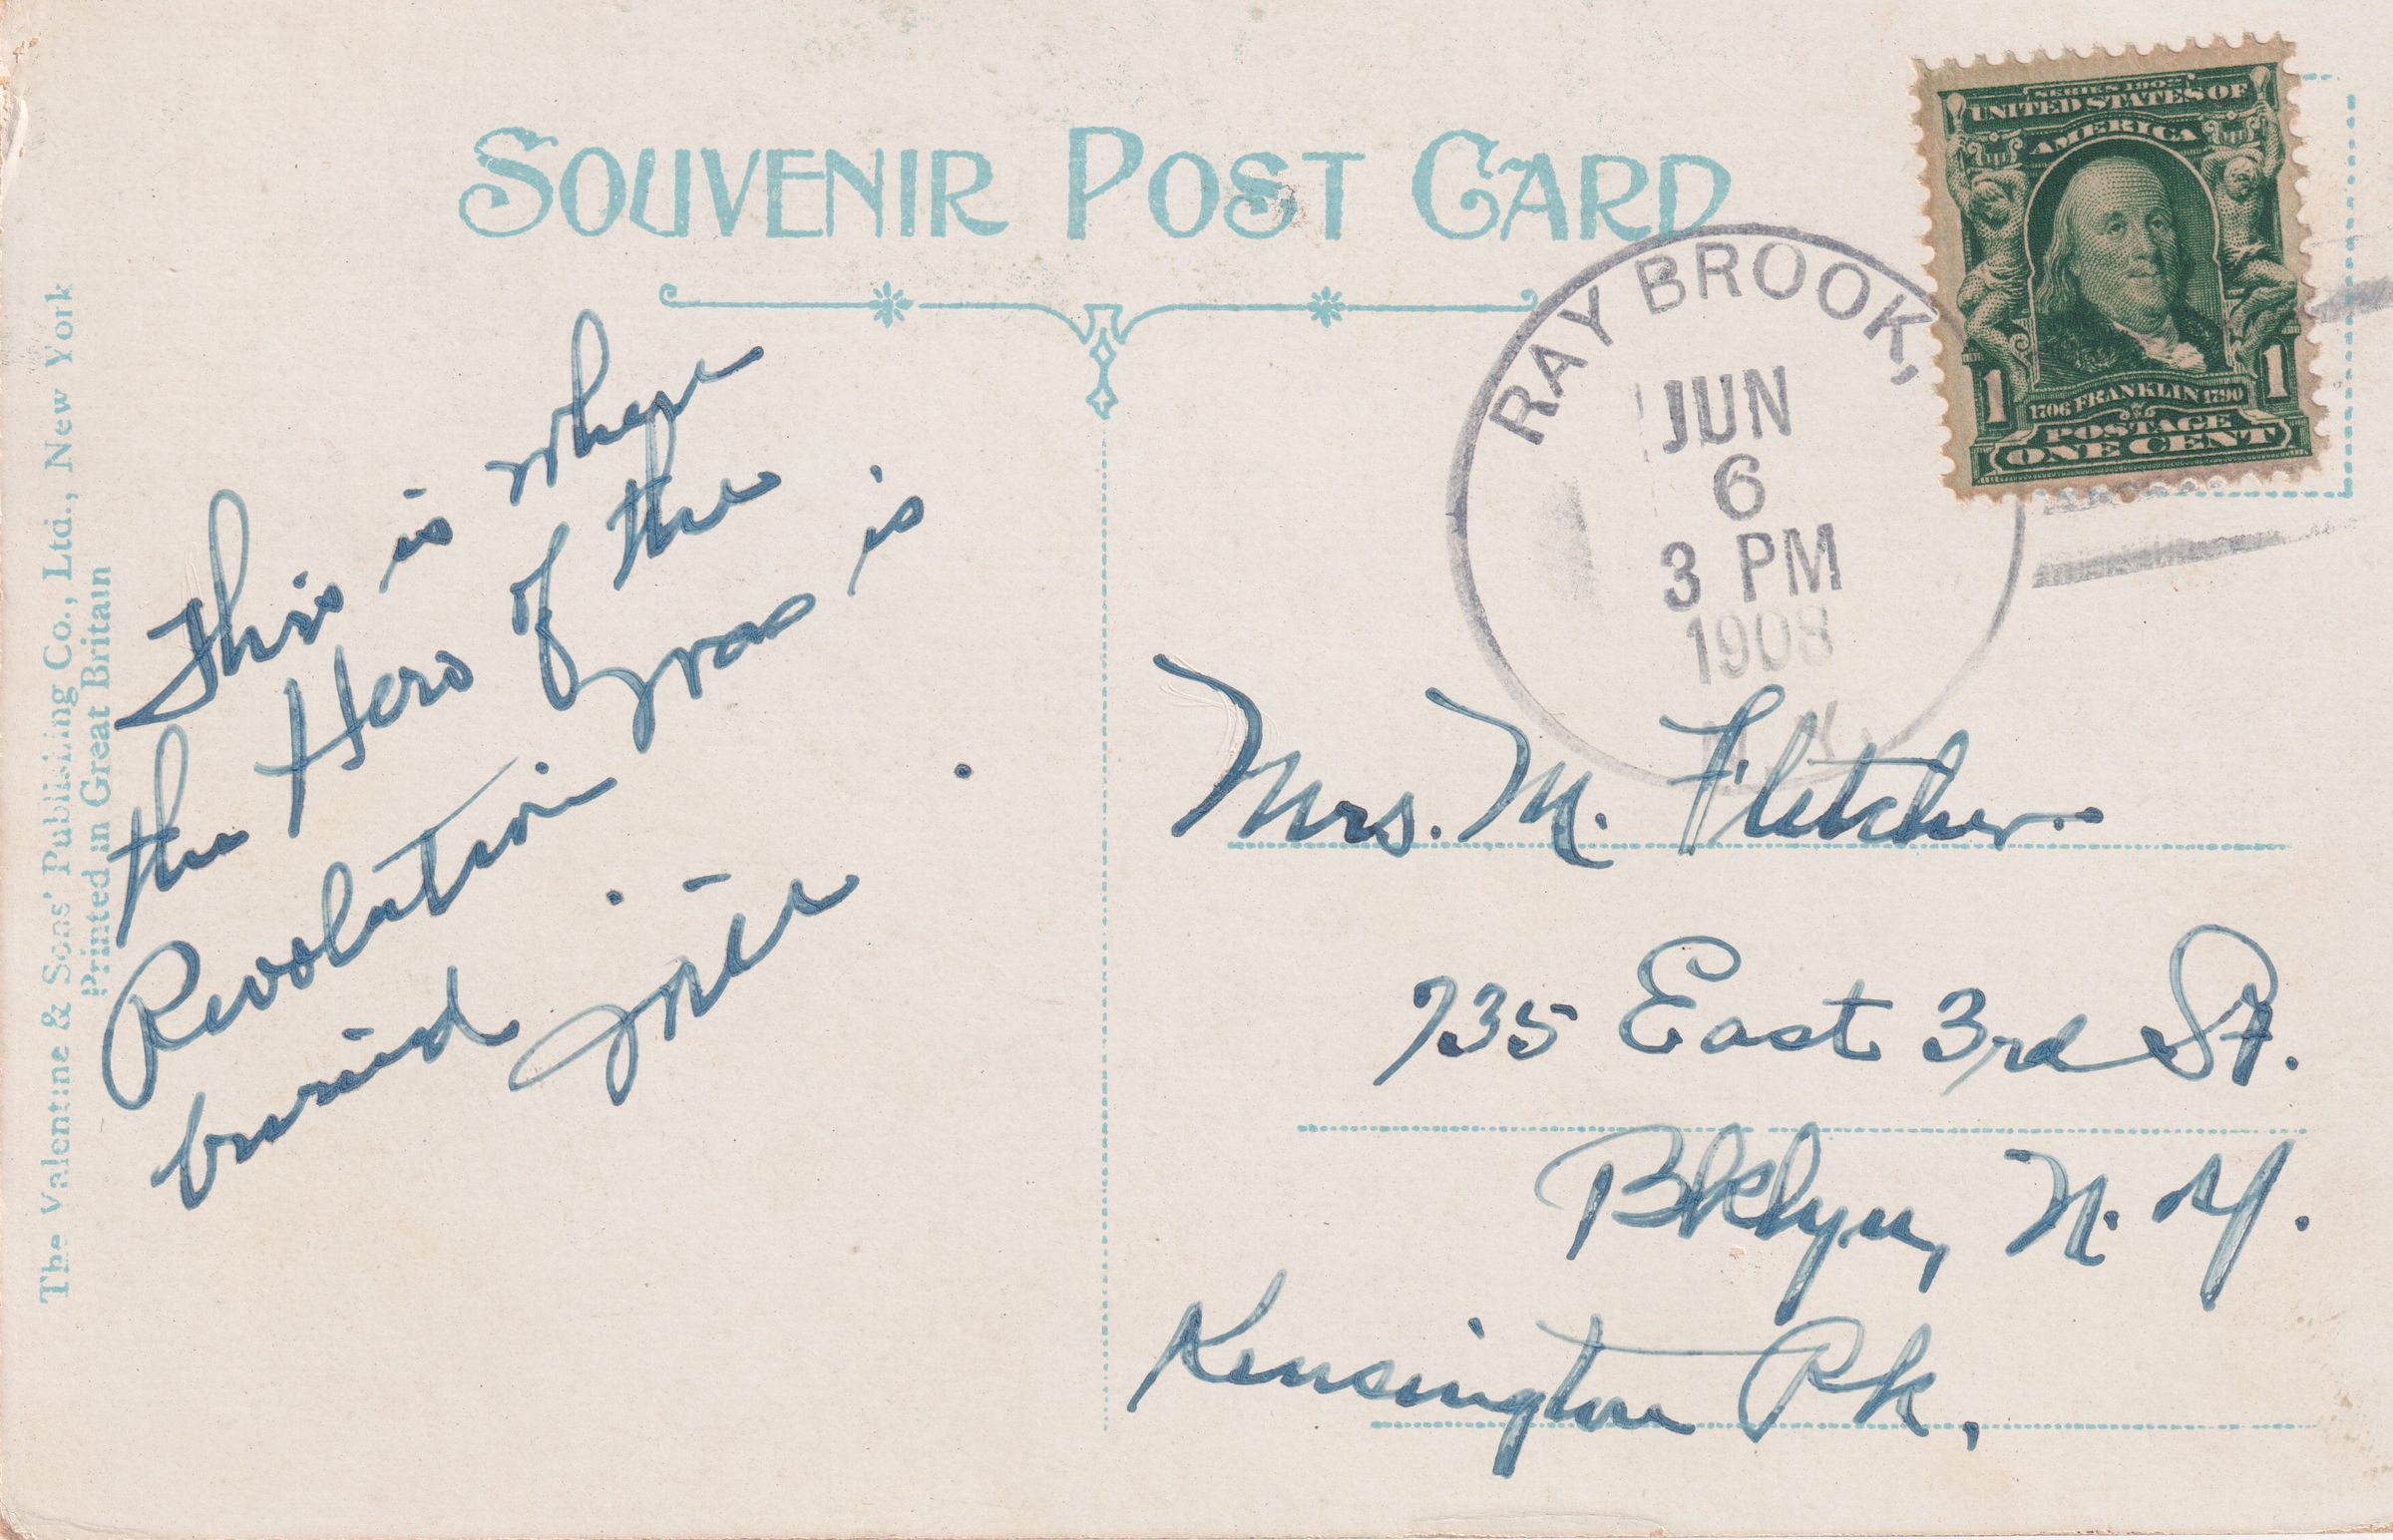 SOUVENIR POST CARD
SERIES 1902
UNITED STATES OF
AMERICA
1 1
1706 FRANKLIN 1790
POSTAGE
ONE CENT
RAY BROOK,
JUN
6
3 PM
1908
N.Y.
This is where
the Hero of the
Revolution is
buried.
Mrs. M. Fletcher.
735 East 3rd St.
Bklyn, N.Y.
Kensington Pk.
The Valentine & Sons' Publishing Co., Ltd., New York
Printed in Great Britain